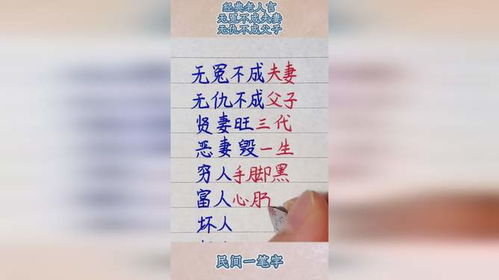 经典老人言
无冤不成夫妻
无仇不成父子
无冤不成夫妻
无仇不成父子
贤妻旺三代
恶妻毁一生
穷人手脚黑
富人心肮
坏人
民间一笔字